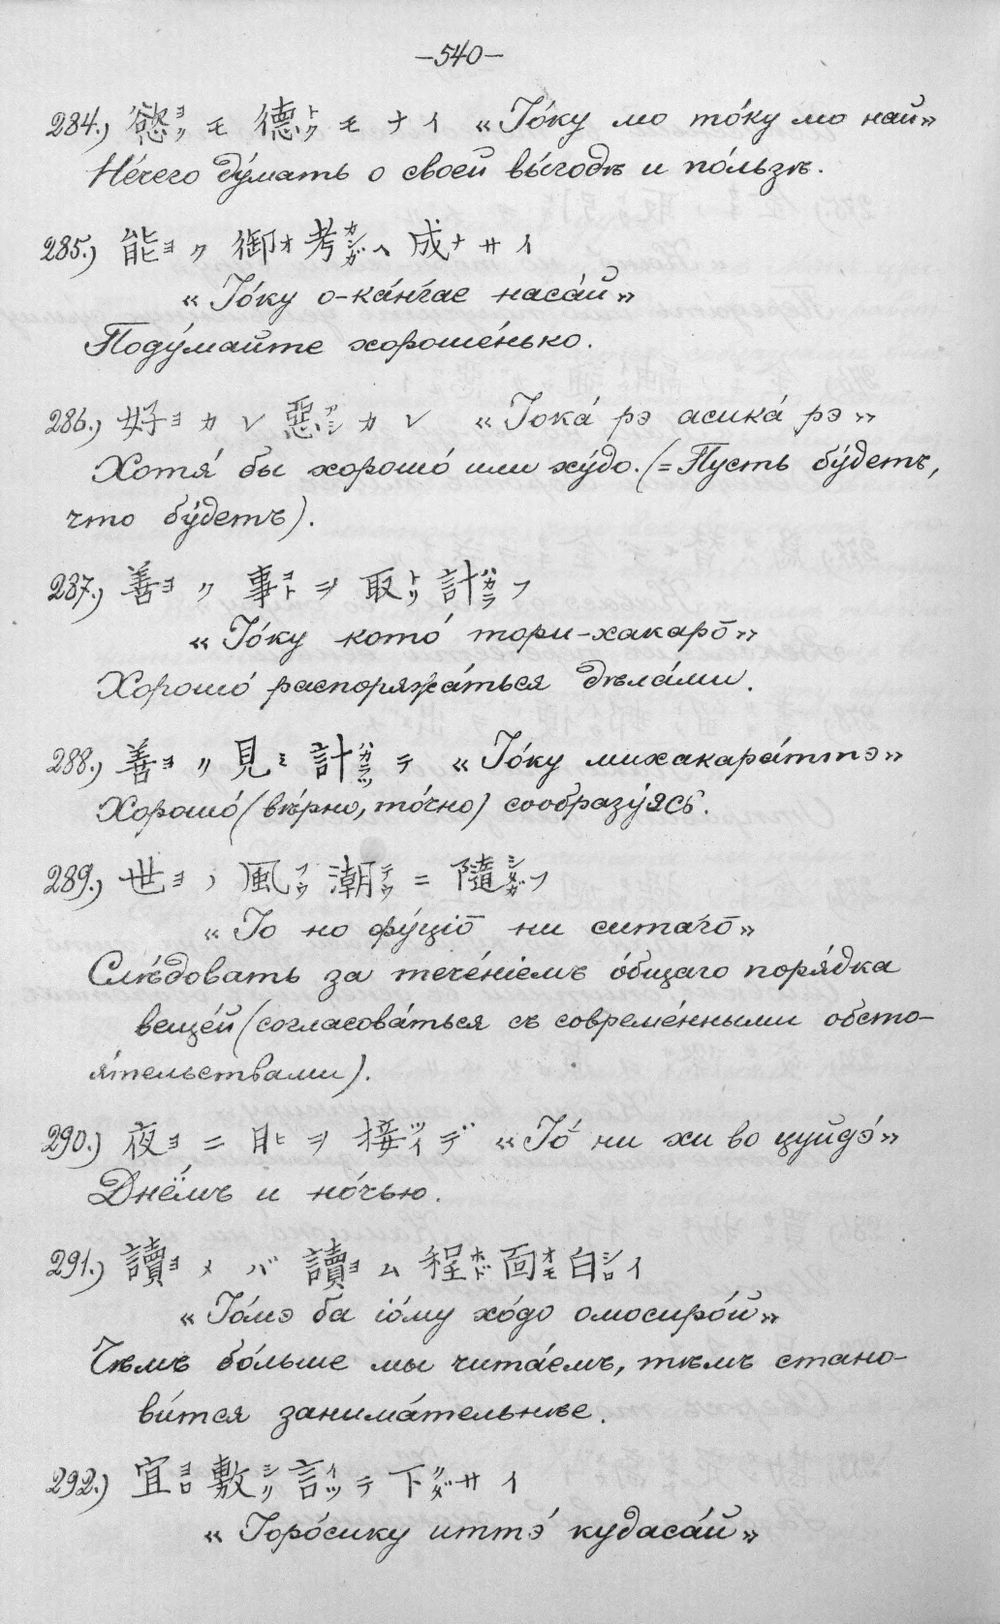 —540—
284.) 慾ヨクモ 德トクモ ナイ «Іо́ку мо то́ку мо най»
Не́чего ду́мать о своей вы́годѣ и по́льзѣ.
285.) 能ヨク 御オ考カンガヘ 成ナサイ
«Іо́ку о-ка́нгае наса́й»
Поду́майте хороше́нько.
286.) 好ヨカレ 惡アシカレ «Іока́ рэ асика́ рэ»
Хотя́ бы хорошо́ или ху́до. (=Пусть бу́детъ,
что бу́детъ).
287.) 善ヨク 事コトヲ 取トリ計ハカラフ
«Іо́ку кото́ тори-хакарō»
Хорошо́ распоряжа́ться дѣла́ми.
288.) 善ヨク 見ミ計ハカラッテ «Іо́ку михакара́ттэ»
Хорошо́ (вѣ́рно, то́чно) сообразу́ясь.
289.) 世ヨノ 風フウ潮テウニ 隨シタガフ
«Іо но фу́ціō ни ситагō»
Слѣ́довать за тече́ніемъ о́бщаго поря́дка
веще́й (согласова́ться съ совреме́нными обсто-
я́тельствами).
290.) 夜ヨニ 日ヒヲ 接ツイデ «Іо́ ни хи во цуйдэ́»
Днёмъ и но́чью.
291.) 讀ヨメバ 讀ヨム 程ホド 面オモ白シロイ
«Іо́мэ ба іо́му хо́до омосиро́й»
Чѣмъ бо́льше мы чита́емъ, тѣмъ стано-
ви́тся занима́тельнѣе.
292.) 宜ヨロ敷シク 言イッテ 下クダサイ
«Іоро́сику иттэ́ кудаса́й»